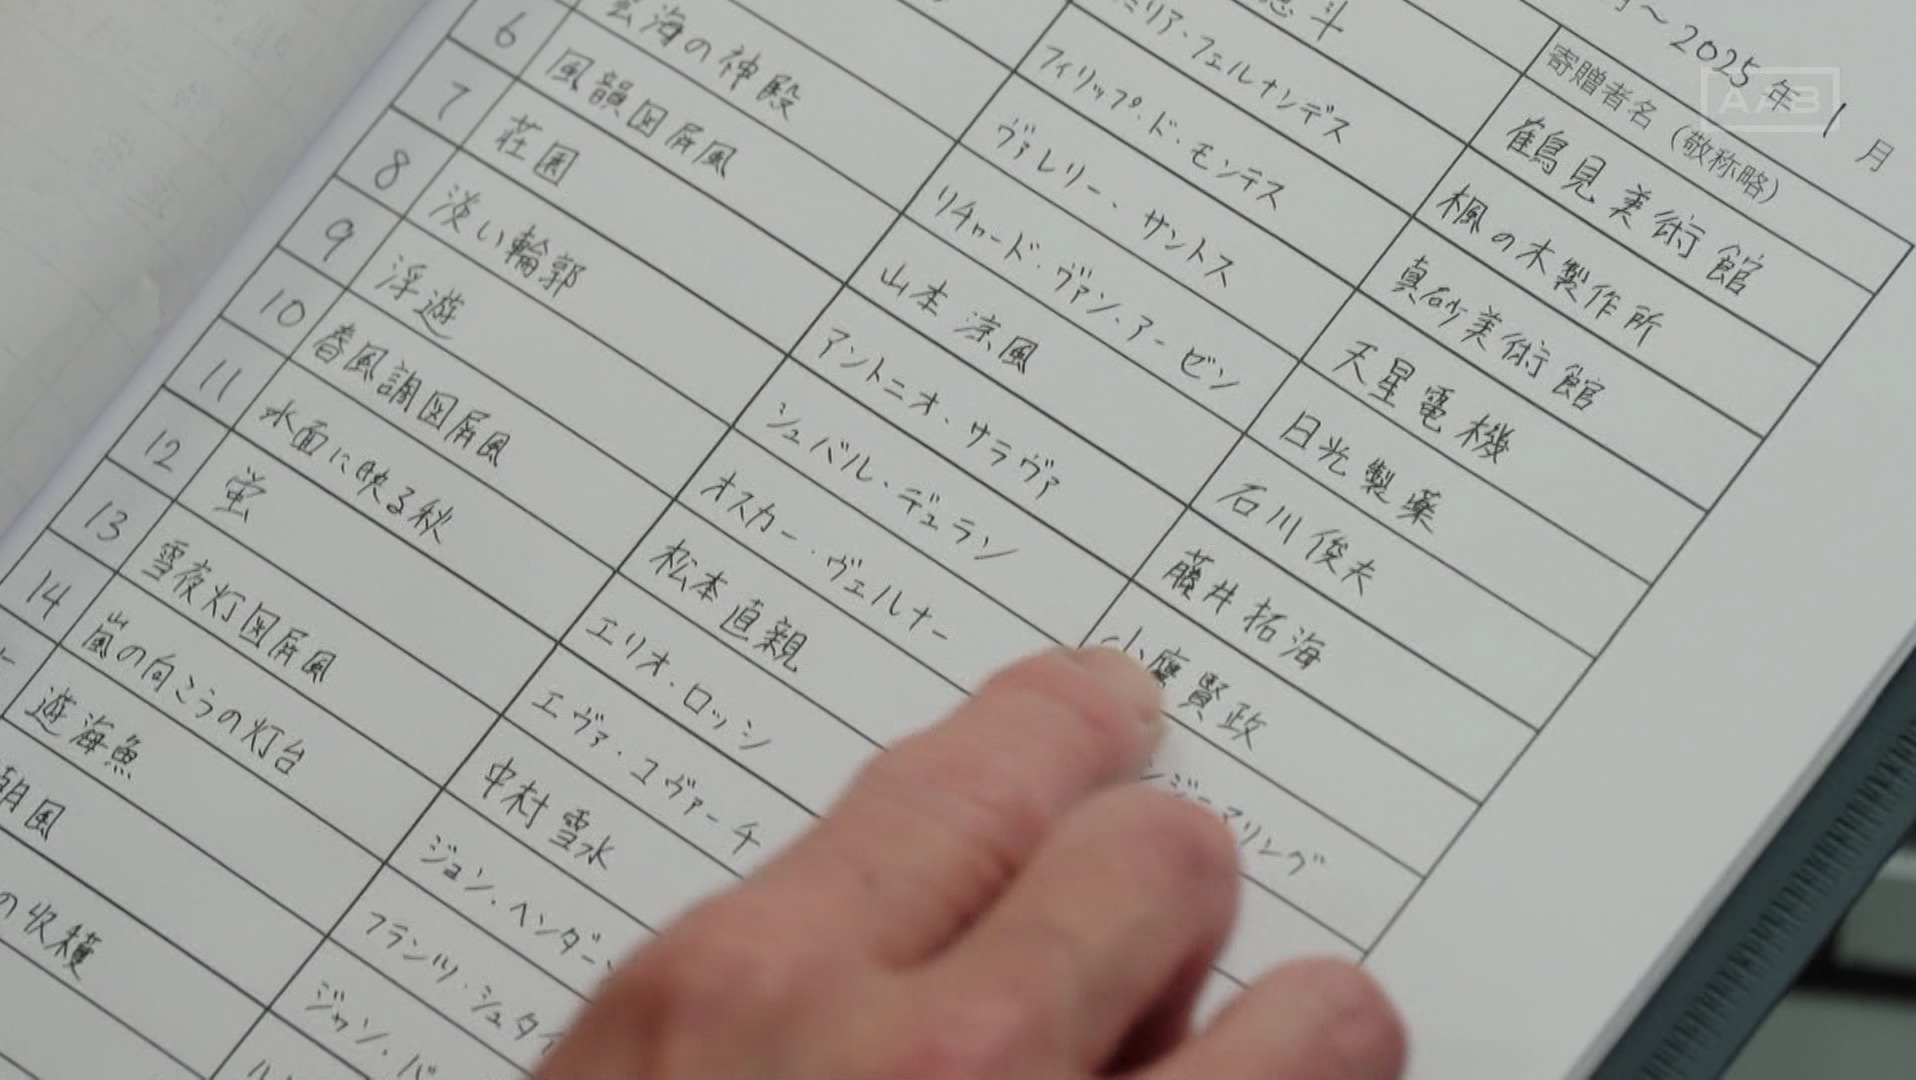 月～2025年1月
寄贈者名（敬称略）
斗 鶴見美術館
ミリア・フェルナンデス 楓の木製作所
フィリップ・ド・モンテス 真砂美術館
ヴァレリー・サントス 天星電機
雲海の神殿 リチャード・ヴァン・アーゼン 日光製薬
6 風韻図屏風 山本涼風 石川俊夫
7 荘園 アントニオ・サラヴァ 藤井拓海
8 淡い輪郭 シュバル・デュラン 小鷹賢政
9 浮遊 オスカー・ヴェルナー リング
10 春風調図屏風 松本直親
11 水面に映る秋 エリオ・ロッシ
12 蛍 エヴァ・コヴァーチ
13 雪夜灯図屏風 中村雪水
14 嵐の向こうの灯台 ジョン・ヘンダー
遊海魚 フランツ・シュタイ
朝風 ジャン・バ
の収穫
AAB